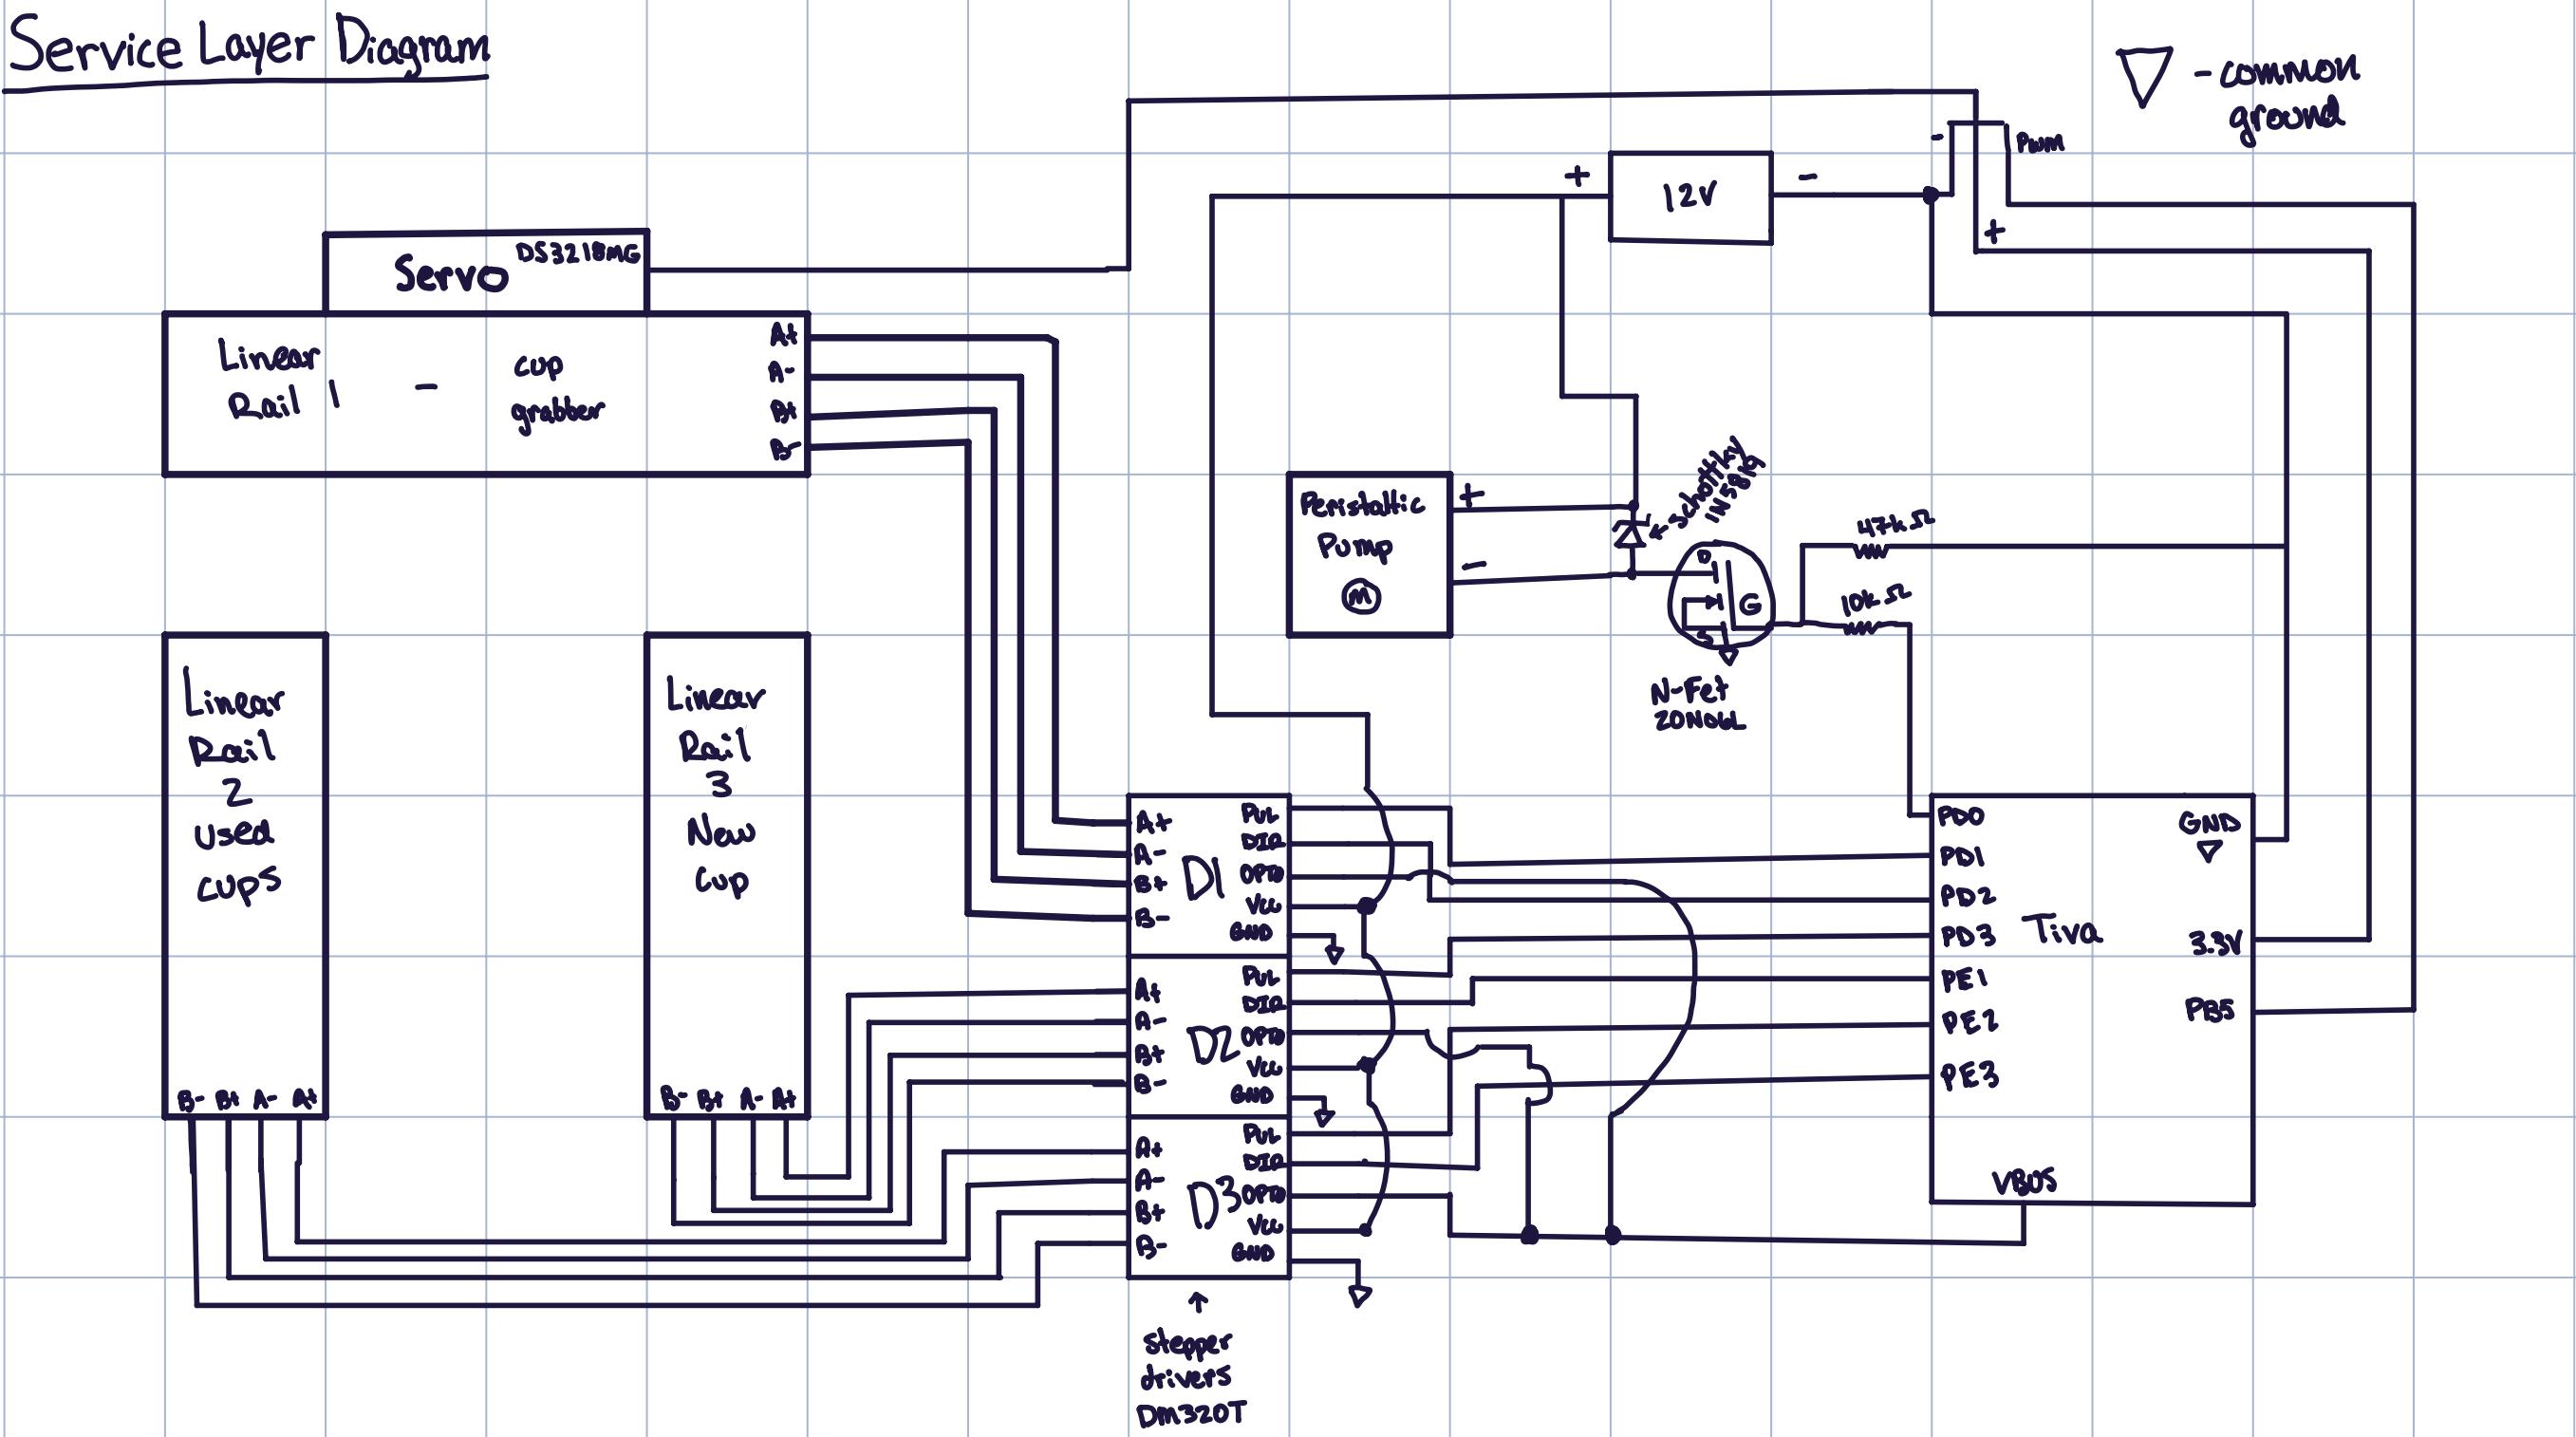 Service Layer Diagram
- common
ground
- PWM
+ 12V -
+
Servo DS3218MG
Linear
Rail 1 - cup
grabber
A+
A-
B+
B-
Peristaltic
Pump
M
+
-
Schottky
1N5819
47kΩ
10kΩ
D
G
S
N-Fet
20N06L
Linear
Rail
2
used
cups
B- B+ A- A+
Linear
Rail
3
New
Cup
B- B+ A- A+
D1
A+
A-
B+
B-
PUL
DIR
OPTO
VCC
GND
D2
A+
A-
B+
B-
PUL
DIR
OPTO
VCC
GND
D3
A+
A-
B+
B-
PUL
DIR
OPTO
VCC
GND
stepper
drivers
DM320T
Tiva
PD0
PD1
PD2
PD3
PE1
PE2
PE3
GND
3.3V
PB5
VBUS